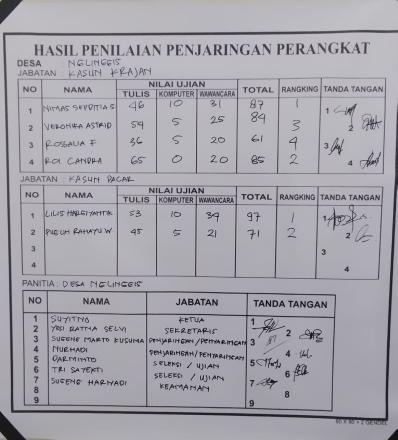 HASIL PENILAIAN PENJARINGAN PERANGKAT
DESA : NGLINGGIS
JABATAN : KASUN KRAJAN
NO NAMA NILAI UJIAN TOTAL RANGKING TANDA TANGAN
TULIS KOMPUTER WAWANCARA
1 46 10 31 87 1 1
2 VERONIKA ASTRID 54 5 25 84 3 2
3 ROSALIA F 36 5 20 61 4 3
4 ROI CANDRA 65 0 20 85 2 4
JABATAN : KASUN PACAR
NO NAMA NILAI UJIAN TOTAL RANGKING TANDA TANGAN
TULIS KOMPUTER WAWANCARA
1 LILIS 53 10 34 97 1 1
2 PUGUH RAHAYU.W. 45 5 21 71 2 2
3 3
4 4
PANITIA : DESA NGLINGGIS
NO NAMA JABATAN TANDA TANGAN
1 SUYITNO KETUA 1
2 YESI RATMA SELVI SEKRETARIS 2
3 SUGENG MARTO KUSUMA PENJARINGAN/PENYARINGAN 3
4 NURHADI PENJARINGAN/PENYARINGAN 4
5 DARMINTO SELEKSI / UJIAN 5
6 TRI SAYEKTI SELEKSI / UJIAN 6
7 SUGENG HARIYADI KEAMANAN 7
8 8
9 9